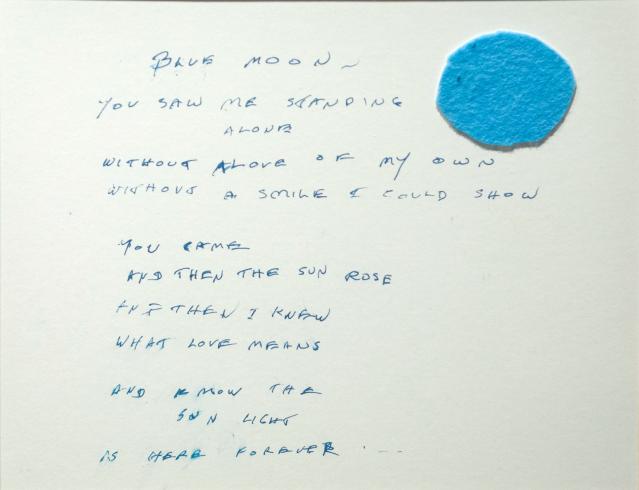 BLUE MOON ~
YOU SAW ME STANDING
ALONE
WITHOUT A LOVE OF MY OWN
WITHOUT A SMILE I COULD SHOW
YOU CAME
AND THEN THE SUN ROSE
AND THEN I KNEW
WHAT LOVE MEANS
AND KNOW THE
SUN LIGHT
IS HERE FOREVER . - - -